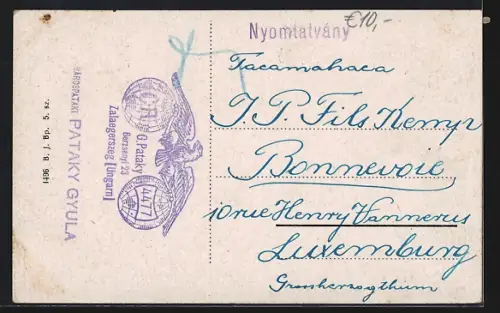 Nyomtatvány
€10,-
Tacamahaca
J. P. Fils Kemp
Bonnevoie
10 rue Henry Vannerus
Luxemburg
Grossherzogthum
G. Pataky
Zalaegerszeg [Ungarn]
4477
PATAKY GYULA
1496 B. J. Bp. 5. sz.